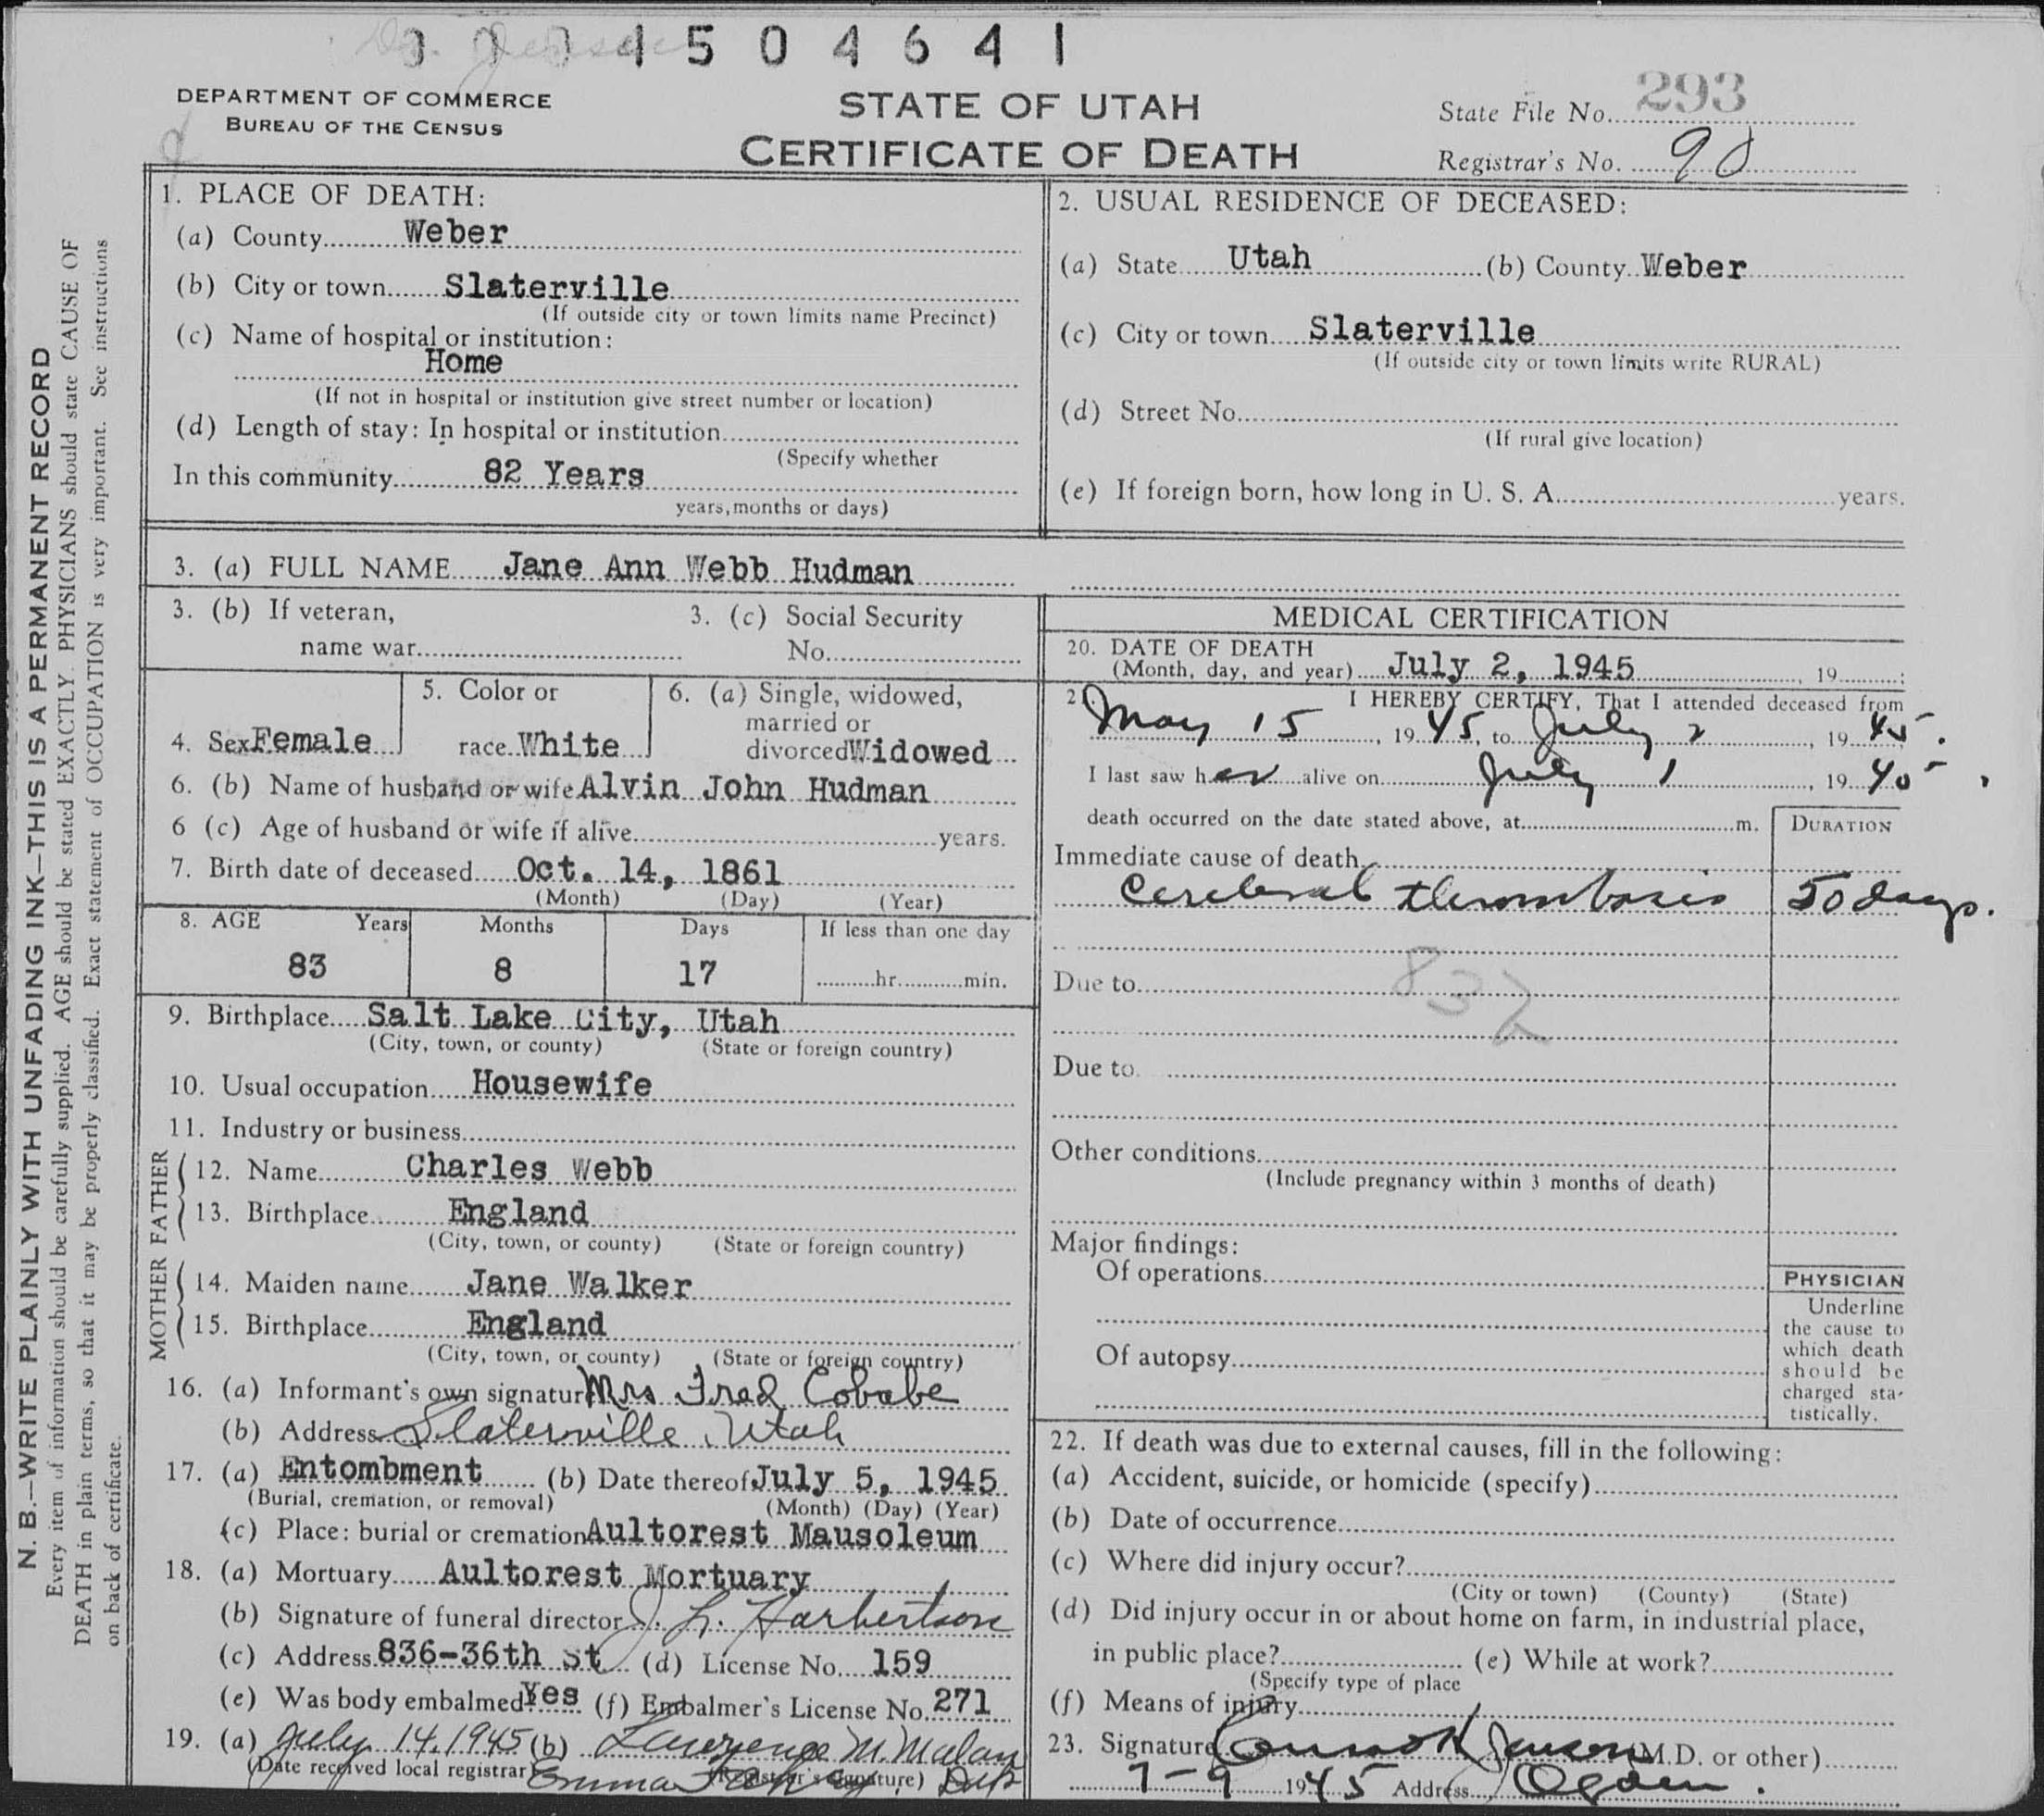 4 5 0 4 6 4 1
DEPARTMENT OF COMMERCE
BUREAU OF THE CENSUS
STATE OF UTAH
CERTIFICATE OF DEATH
State File No. 293
Registrar's No. 90
N. B.—WRITE PLAINLY WITH UNFADING INK—THIS IS A PERMANENT RECORD
Every item of information should be carefully supplied. AGE should be stated EXACTLY. PHYSICIANS should state CAUSE OF
DEATH in plain terms, so that it may be properly classified. Exact statement of OCCUPATION is very important. See instructions
on back of certificate.
1. PLACE OF DEATH:
(a) County Weber
(b) City or town Slaterville
(If outside city or town limits name Precinct)
(c) Name of hospital or institution:
Home
(If not in hospital or institution give street number or location)
(d) Length of stay: In hospital or institution
(Specify whether
In this community 82 Years
years, months or days)
2. USUAL RESIDENCE OF DECEASED:
(a) State Utah (b) County Weber
(c) City or town Slaterville
(If outside city or town limits write RURAL)
(d) Street No.
(If rural give location)
(e) If foreign born, how long in U. S. A. years.
3. (a) FULL NAME Jane Ann Webb Hudman
3. (b) If veteran,
name war
3. (c) Social Security
No.
4. Sex Female
5. Color or
race White
6. (a) Single, widowed,
married or
divorced Widowed
6. (b) Name of husband or wife Alvin John Hudman
6 (c) Age of husband or wife if alive years.
7. Birth date of deceased Oct. 14, 1861
(Month) (Day) (Year)
8. AGE Years Months Days If less than one day
83 8 17 hr. min.
9. Birthplace Salt Lake City, Utah
(City, town, or county) (State or foreign country)
10. Usual occupation Housewife
11. Industry or business
FATHER
12. Name Charles Webb
13. Birthplace England
(City, town, or county) (State or foreign country)
MOTHER
14. Maiden name Jane Walker
15. Birthplace England
(City, town, or county) (State or foreign country)
16. (a) Informant's own signature Mrs Fred Cobabe
(b) Address Slaterville, Utah
17. (a) Entombment (b) Date thereof July 5, 1945
(Burial, cremation, or removal) (Month) (Day) (Year)
(c) Place: burial or cremation Aultorest Mausoleum
18. (a) Mortuary Aultorest Mortuary
(b) Signature of funeral director J. L. Harbertson
(c) Address 836-36th St (d) License No. 159
(e) Was body embalmed? Yes (f) Embalmer's License No. 271
19. (a) July 14, 1945 (b) Lawrence M. Malan
(Date received local registrar) (Registrar's signature)
Emma Dep
MEDICAL CERTIFICATION
20. DATE OF DEATH
(Month, day, and year) July 2, 1945, 19 ;
2 I HEREBY CERTIFY, That I attended deceased from
May 15, 1945, to July 2, 1945.
I last saw her alive on July 1, 1945,
death occurred on the date stated above, at m.
DURATION
Immediate cause of death
Cerebral thrombosis 50 days.
Due to
832
Due to
Other conditions
(Include pregnancy within 3 months of death)
Major findings:
Of operations
Of autopsy
PHYSICIAN
Underline
the cause to
which death
should be
charged sta-
tistically.
22. If death was due to external causes, fill in the following:
(a) Accident, suicide, or homicide (specify)
(b) Date of occurrence
(c) Where did injury occur?
(City or town) (County) (State)
(d) Did injury occur in or about home on farm, in industrial place,
in public place? (e) While at work?
(Specify type of place
(f) Means of injury
23. Signature Jenson (M.D. or other)
7-9 1945 Address Ogden.